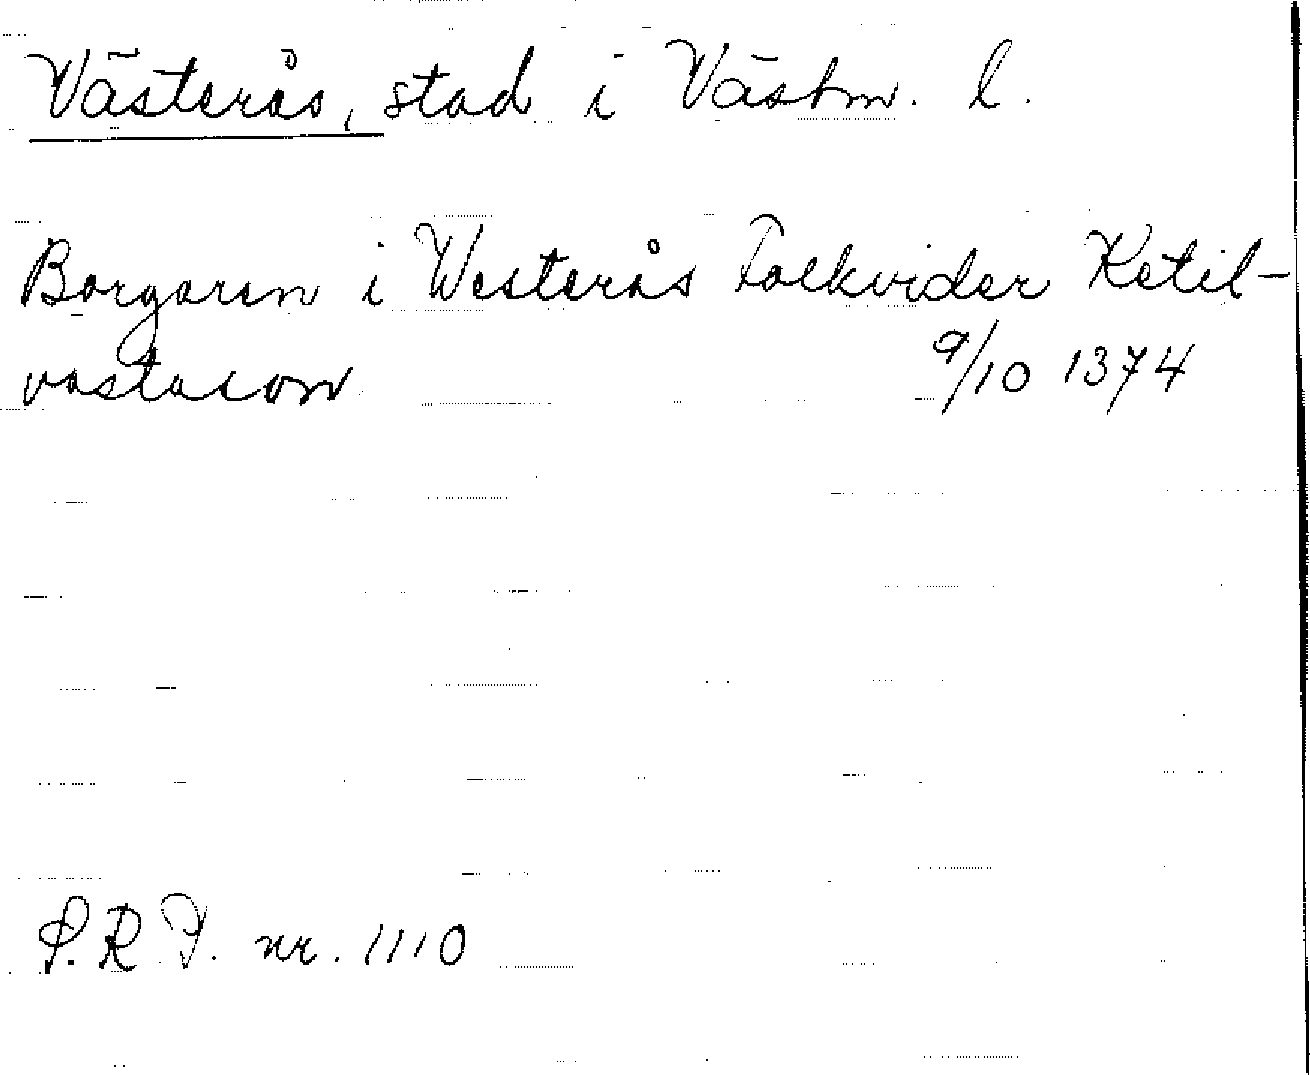 Västerås, stad i Västm. l.
Borgaren i Westerås Folkvider Ketil-
vastason 9/10 1374
S.R.P. nr. 1110